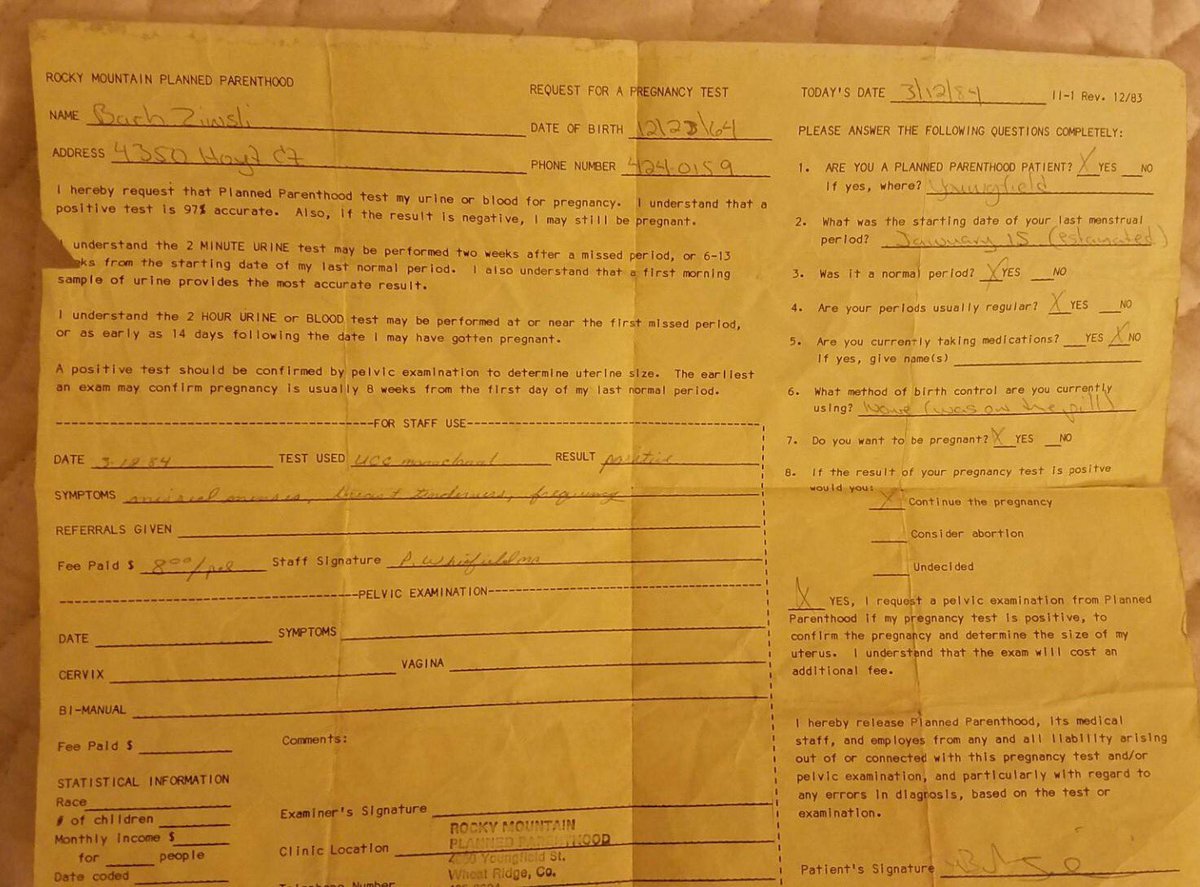 ROCKY MOUNTAIN PLANNED PARENTHOOD
REQUEST FOR A PREGNANCY TEST
TODAY'S DATE 3/12/84 II-1 Rev. 12/83
NAME
DATE OF BIRTH 12/23/64
ADDRESS 4350 Hoyt Ct
PHONE NUMBER 424-0159
I hereby request that Planned Parenthood test my urine or blood for pregnancy. I understand that a
positive test is 97% accurate. Also, if the result is negative, I may still be pregnant.
understand the 2 MINUTE URINE test may be performed two weeks after a missed period, or 6-13
ks from the starting date of my last normal period. I also understand that a first morning
sample of urine provides the most accurate result.
I understand the 2 HOUR URINE or BLOOD test may be performed at or near the first missed period,
or as early as 14 days following the date I may have gotten pregnant.
A positive test should be confirmed by pelvic examination to determine uterine size. The earliest
an exam may confirm pregnancy is usually 8 weeks from the first day of my last normal period.
FOR STAFF USE
DATE 3-12-84 TEST USED UCG RESULT positive
SYMPTOMS missed menses, breast tenderness, frequency
REFERRALS GIVEN
Fee Paid $ 8.00/pd Staff Signature P.
PELVIC EXAMINATION
DATE SYMPTOMS
CERVIX VAGINA
BI-MANUAL
Fee Paid $ Comments:
STATISTICAL INFORMATION
Race
# of children
Monthly Income $
for people
Date coded
Examiner's Signature
Clinic Location
ROCKY MOUNTAIN
PLANNED PARENTHOOD
Youngfield St.
Wheat Ridge, Co.
Telephone Number
PLEASE ANSWER THE FOLLOWING QUESTIONS COMPLETELY:
1. ARE YOU A PLANNED PARENTHOOD PATIENT? X YES NO
If yes, where? Youngfield
2. What was the starting date of your last menstrual
period? January 15 (estamated)
3. Was it a normal period? X YES NO
4. Are your periods usually regular? X YES NO
5. Are you currently taking medications? YES X NO
If yes, give name(s)
6. What method of birth control are you currently
using? None (was on the pill)
7. Do you want to be pregnant? X YES NO
8. If the result of your pregnancy test is positve
would you:
X Continue the pregnancy
Consider abortion
Undecided
X YES, I request a pelvic examination from Planned
Parenthood if my pregnancy test is positive, to
confirm the pregnancy and determine the size of my
uterus. I understand that the exam will cost an
additional fee.
I hereby release Planned Parenthood, its medical
staff, and employes from any and all liability arising
out of or connected with this pregnancy test and/or
pelvic examination, and particularly with regard to
any errors in diagnosis, based on the test or
examination.
Patient's Signature